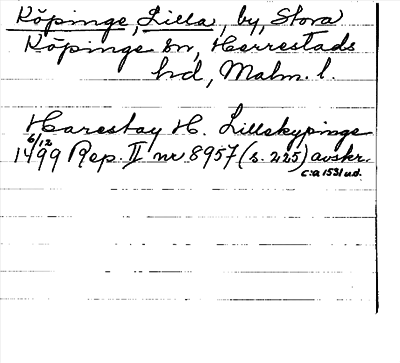 Köpinge, Lilla, by, Stora
Köpinge sn, Herrestads
hd, Malm. l.
Harestay H. Lillekypinge
6/12
1499 Rep. II nr 8957 (s. 225) avskr.
c:a 1531 ud.